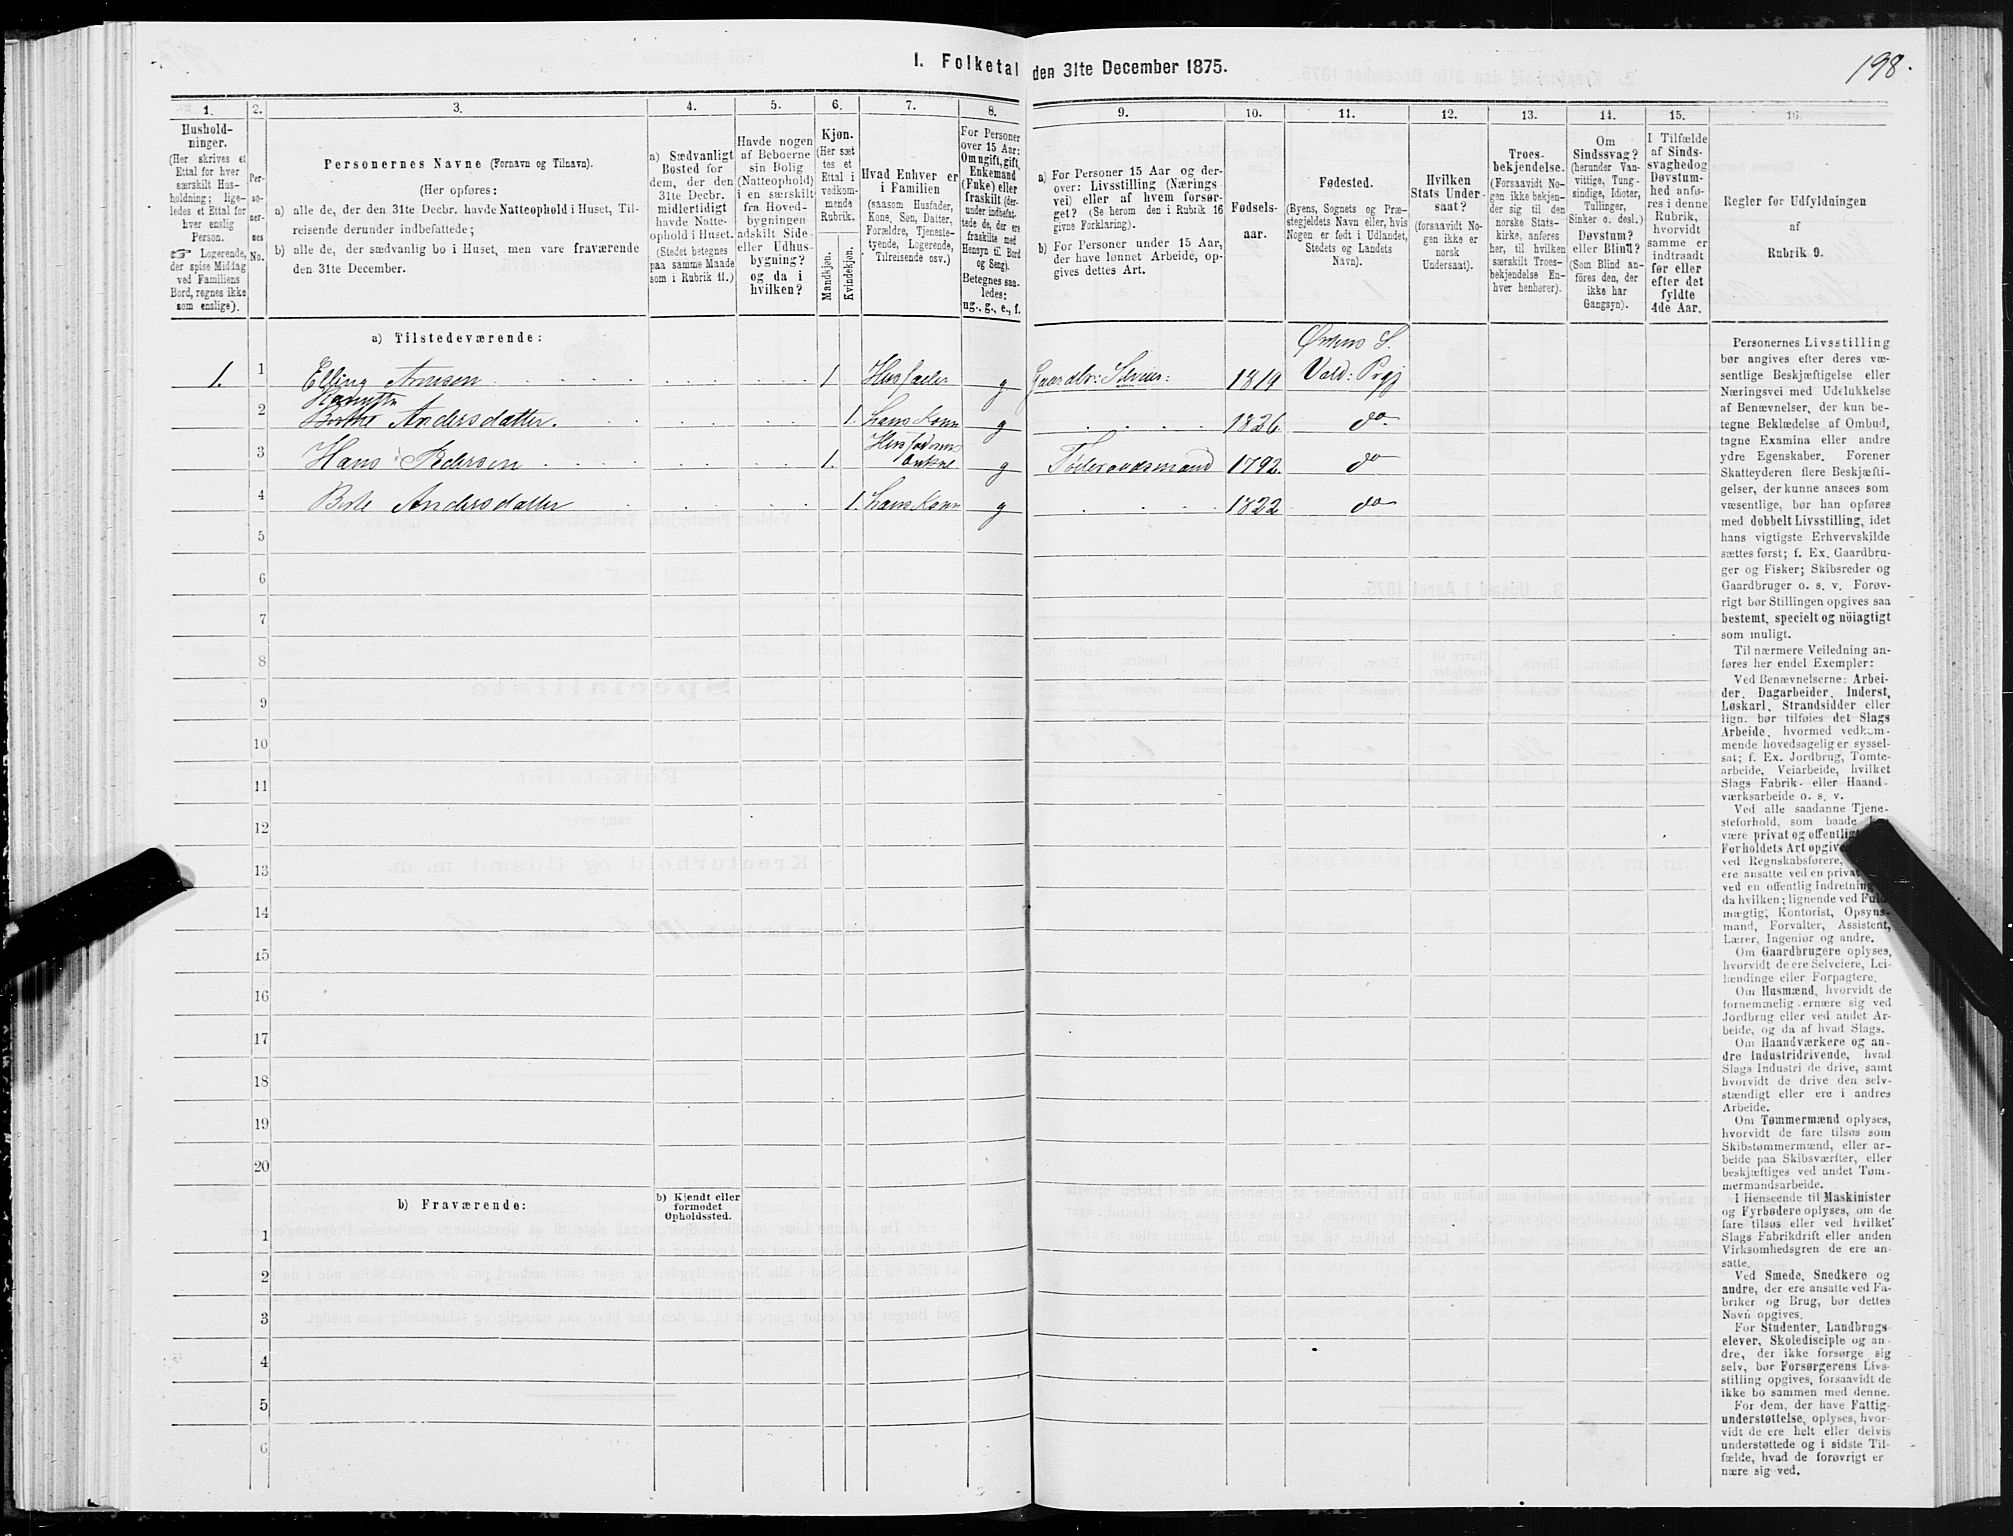 I. Folketal den 31te December 1875.
198.
1.
2.
3.
4.
5.
6.
7.
8.
9.
10.
11.
12.
13.
14.
15.
16.
Hushold-
ninger.
(Her skrives et
Ettal for hver
særskilt Hus-
holdning; lige-
ledes et Ettal for
hver enslig
Person.
☞ Logerende,
der spise Middag
ved Familiens
Bord, regnes ikke
som enslige).
Per-
so-
ner-
nes
No.
Personernes Navne (Fornavn og Tilnavn).
(Her opføres:
a) alle de, der den 31te Decbr. havde Natteophold i Huset, Til-
reisende derunder indbefattede;
b) alle de, der sædvanlig bo i Huset, men vare fraværende
den 31te December.
a) Sædvanligt
Bosted for
dem, der den
31te Decbr.
midlertidigt
havde Natte-
ophold i Huset.
(Stedet betegnes
paa samme Maade
som i Rubrik 11.)
Havde nogen
af Beboerne
sin Bolig
(Natteophold)
i en særskilt
fra Hoved-
bygningen
adskilt Side-
eller Udhus-
bygning?
og da i
hvilken?
Kjøn.
(Her sæt-
tes et
Ettal i
vedkom-
mende
Rubrik.
Mandkjøn.
Kvindekjøn.
Hvad Enhver er
i Familien
(saasom Husfader,
Kone, Søn, Datter,
Forældre, Tjeneste-
tyende, Logerende,
Tilreisende osv.)
For Personer
over 15 Aar:
Om ugift, gift,
Enkemand
(Enke) eller
fraskilt (der-
under indbefat-
tede de, der ere
fraskilte med
Hensyn til Bord
og Seng).
Betegnes saa-
ledes:
ug., g., e., f.
a) For Personer 15 Aar og der-
over: Livsstilling (Nærings-
vei) eller af hvem forsør-
get? (Se herom den i Rubrik 16
givne Forklaring).
b) For Personer under 15 Aar,
der have lønnet Arbeide, op-
gives dettes Art.
Fødsels-
aar.
Fødested.
(Byens, Sognets og Præ-
stegjeldets Navn eller, hvis
Nogen er født i Udlandet,
Stedets og Landets
Navn).
Hvilken
Stats Under-
saat?
(forsaavidt No-
gen ikke er
norsk
Undersaat).
Troes-
bekjendelse.
(Forsaavidt No-
gen ikke bekjen-
der sig til den
norske Stats-
kirke, anføres
her, til hvilken
særskilt Troes-
bekjendelse En-
hver henhører).
Om
Sindssvag?
(herunder Van-
vittige, Tung-
sindige, Idioter,
Tullinger,
Sinker o. desl.)
Døvstum?
eller Blind?
(Som Blind an-
føres den, der
ikke har
Gangsyn).
I Tilfælde
af Sinds-
svaghed og
Døvstum-
hed anfø-
res i denne
Rubrik,
hvorvidt
samme er
indtraadt
før eller
efter det
fyldte
4de Aar.
Regler for Udfyldningen
af
Rubrik 9.
a) Tilstedeværende:
1. 1 Elling Arnesen 1 Husfader g Gaardbr: Selveier: 1819 Vald: Prgj
2 Andersdatter. 1. hans Kone g 1836 do
3 Hans Pedersen 1. g Føderaadsmand 1792 do
4 Andersdatter 1. hans Kone g 1822 do
5
6
7
8
9
10
11
12
13
14
15
16
17
18
19
20
b) Fraværende:
b) Kjendt eller
formodet
Opholdssted.
1
2
3
4
5
6
Personernes Livsstilling
bør angives efter deres væ-
sentlige Beskjæftigelse eller
Næringsvei med Udelukkelse
af Benævnelser, der kun be-
tegne Beklædelse af Ombud,
tagne Examina eller andre
ydre Egenskaber. Forener
Skatteyderen flere Beskjæfti-
gelser, der kunne ansees som
væsentlige, bør han opføres
med dobbelt Livsstilling, idet
hans vigtigste Erhvervskilde
sættes først; f. Ex. Gaardbru-
ger og Fisker; Skibsreder og
Gaardbruger o. s. v. Forøv-
rigt bør Stillingen opgives saa
bestemt, specielt og nöiagtigt
som muligt.
Til nærmere Veiledning an-
føres her endel Exempler:
Ved Benævnelserne: Arbei-
der, Dagarbeider, Inderst,
Løskarl, Strandsidder eller
lign. bør tilføies det Slags
Arbeide, hvormed vedkom-
mende hovedsagelig er syssel-
sat; f. Ex. Jordbrug, Tomte-
arbeide, Veiarbeide, hvilket
Slags Fabrik- eller Haand-
værksarbeide o. s. v.
Ved alle saadanne Tjene-
steforhold, som baade
være privat og offentligt
Forholdets Art opgiv
ved Regnskabsførere,
ere ansatte ved en privat
ved en offentlig Indretning
da hvilken; lignende ved Fuld-
mægtig, Kontorist, Opsyns-
mand, Forvalter, Assistent,
Lærer, Ingeniør og andre.
Om Gaardbrugere oplyses,
hvorvidt de ere Selveiere, Lei-
lændinge eller Forpagtere.
Om Husmænd, hvorvidt de
fornemmelig ernære sig ved
Jordbrug eller ved andet Ar-
beide, og da af hvad Slags.
Om Haandværkere og an-
dre Industridrivende, hvad
Slags Industri de drive, samt
hvorvidt de drive den selv-
stændigt eller ere i andres
Arbeide.
Om Tømmermænd oplyses,
hvorvidt de fare tilsøs som
Skibstømmermænd, eller ar-
beide paa Skibsværfter, eller
beskjæftiges ved andet Tøm-
mermandsarbeide.
I Henseende til Maskinister
og Fyrbødere oplyses, om de
fare tilsøs eller ved hvilket
Slags Fabrikdrift eller anden
Virksomhedsgren de ere an-
satte.
Ved Smede, Snedkere og
andre, der ere ansatte ved Fa-
briker og Brug, bør dettes
Navn opgives.
For Studenter, Landbrugs-
elever, Skoledisciple og an-
dre, der ikke forsørge sig
selv, bør Forsørgerens Livs-
stilling opgives, forsaavidt de
ikke bo sammen med denne.
For dem, der have Fattig-
understøttelse, oplyses, hvor-
vidt de ere helt eller delvis
understøttede og i sidste Til-
fælde, hvad de forøvrigt er-
nære sig ved.